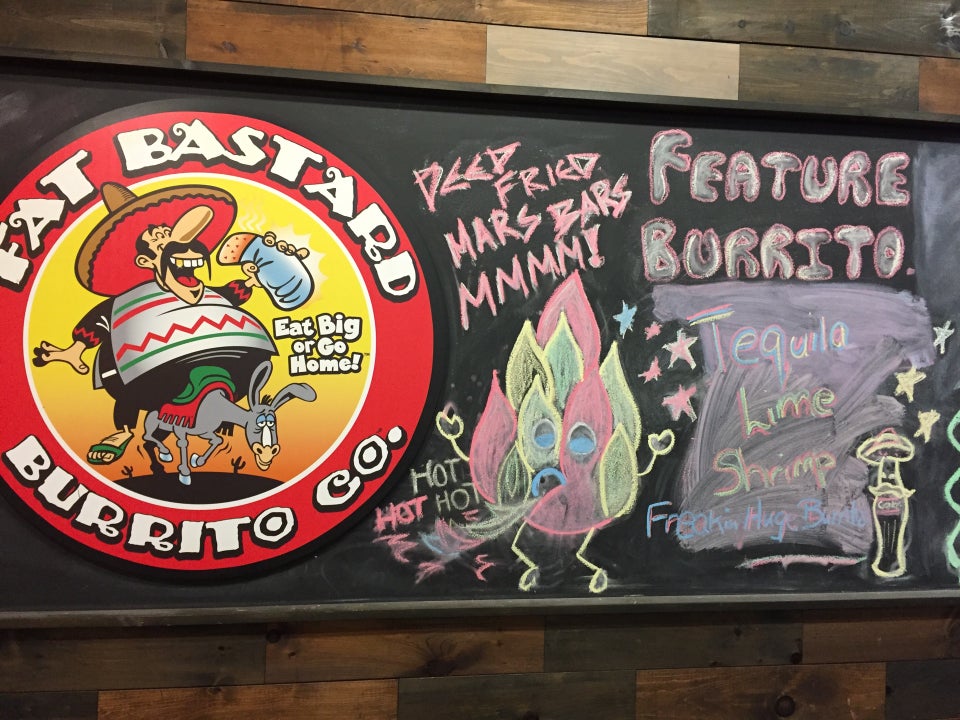 FAT BASTARD
BURRITO CO.
Eat Big
or Go
Home!
DEEP
FRIED
MARS BARS
MMMM!
HOT
HOT HOT
FEATURE
BURRITO.
Tequila
Lime
Shrimp
Freakin Huge Burrito